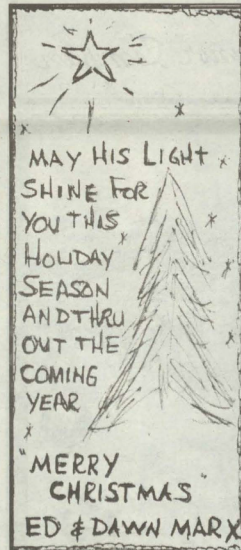 MAY HIS LIGHT
SHINE FOR
YOU THIS
HOLIDAY
SEASON
AND THRU
OUT THE
COMING
YEAR
"MERRY
CHRISTMAS"
ED & DAWN MARX